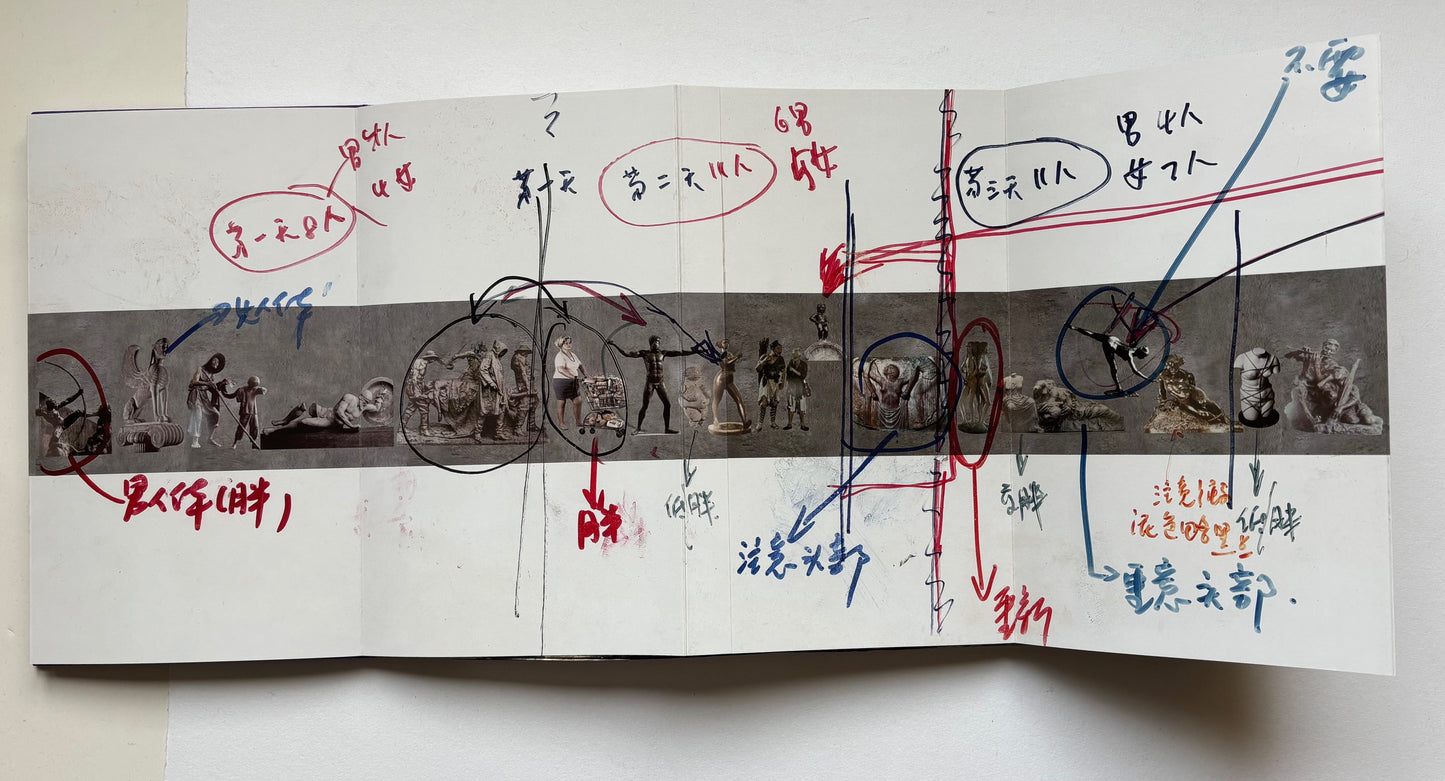 男4人
4女
第一天8人
女人体
男人体(胖)
第一天
第二天11人
6男
5女
胖
低胖
注意头部
第三天11人
男4人
女7人
不要
重新
注意
泥色
低胖
重意头部.